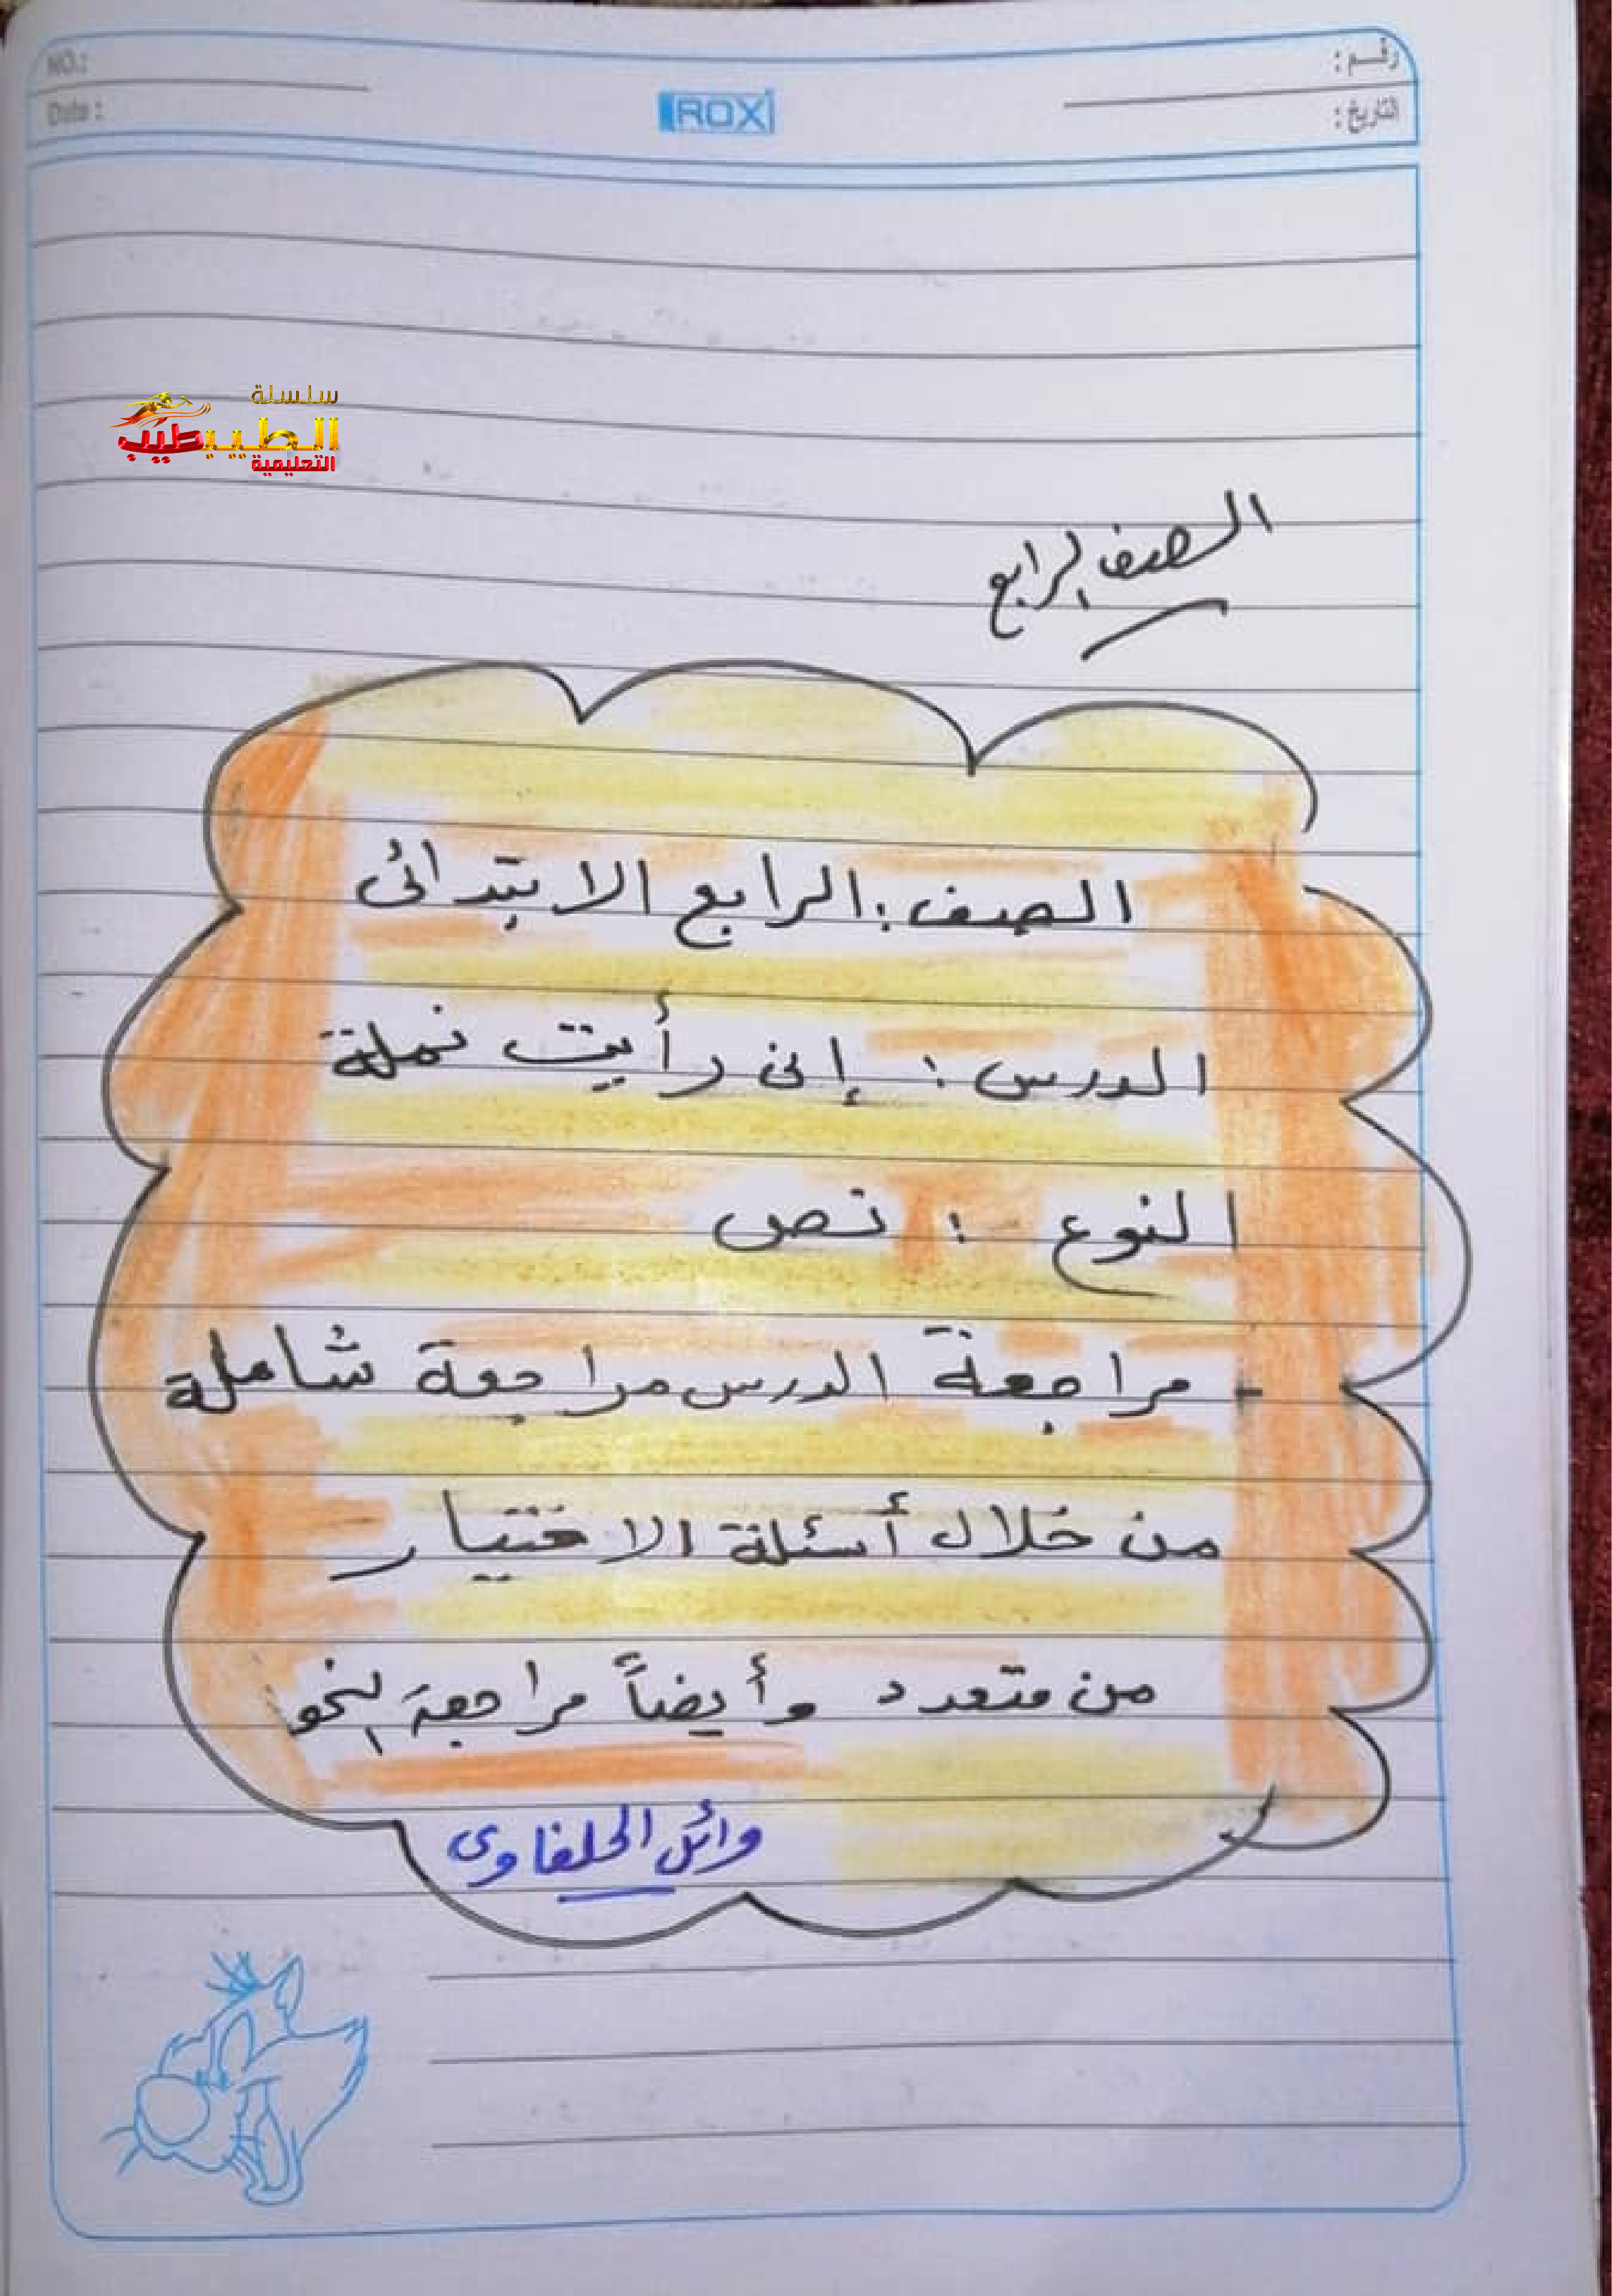 رقم :
NO.:
التاريخ :
Date :
ROXI
سلسلة
الطيبطيب
التعليمية
الصف الرابع
الصف : الرابع الابتدائى
الدرس : إنى رأيت نملة
النوع : نص
- مراجعة الدرس مراجعة شاملة
من خلال أسئلة الاختيار
من متعدد وأيضاً مراجعة النحو
وائل الحلفاوى